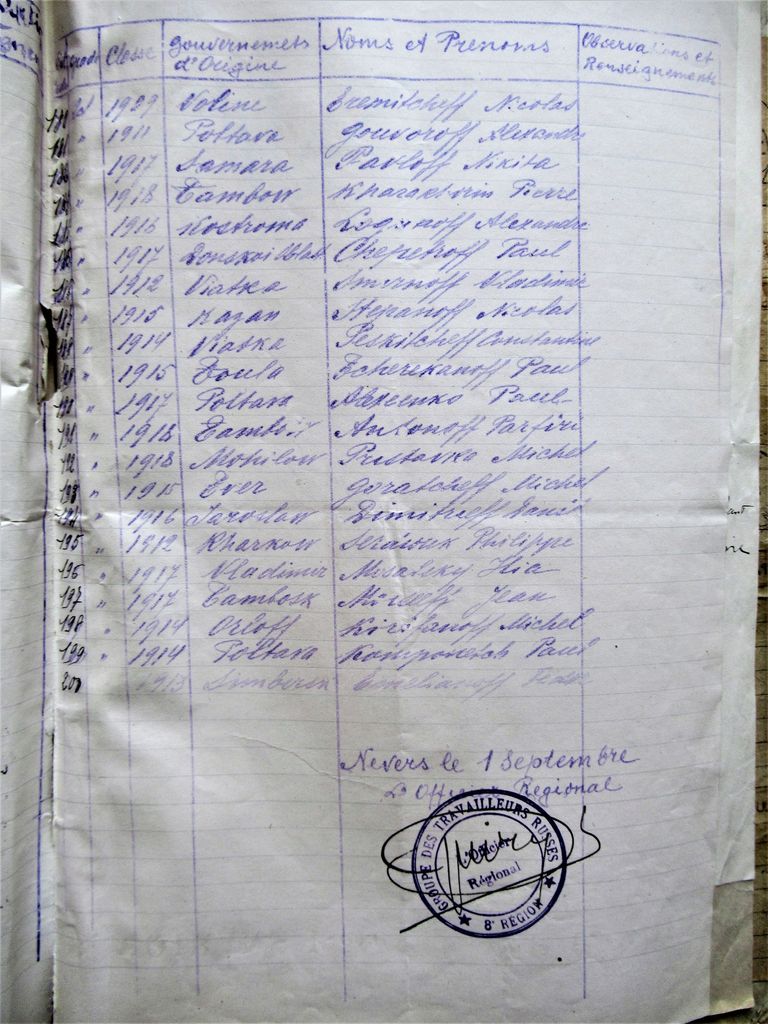 Classe Gouvernemets d'Origine Noms et Prenoms Observations et Renseignements
1929 Voline Eremitcheff Nicolas
1911 Poltava Gouvoroff Alexandre
1917 Samara Pavloff Nikita
1918 Tambow Pierre
1916 Kostroma Loginoff Alexandre
1917 Donskoi Oblast Chepeteff Paul
1912 Viatka Smirnoff Vladimir
187 " 1915 Kazan Stepanoff Nicolas
188 " 1914 Viatka Peskitcheff Constantine
189 " 1915 Toula Tcherekanoff Paul
190 " 1917 Poltava Alexeenko Paul
191 " 1918 Tambow Antonoff Parfiri
192 " 1918 Mohilow Pristavka Michel
193 " 1915 Tver Goratcheff Michel
194 " 1916 Jaroslaw Dimitrieff
195 " 1912 Kharkow Philippe
196 " 1917 Vladimir Ilia
197 " 1917 Tambosk Jean
198 " 1914 Orloff Kirsanoff Michel
199 " 1914 Poltava Paul
200 1913 Simbirsk Emelianoff
Nevers le 1 Septembre
L'Officier Regional
GROUPE DES TRAVAILLEURS RUSSES
L'Officier
Régional
8e REGION